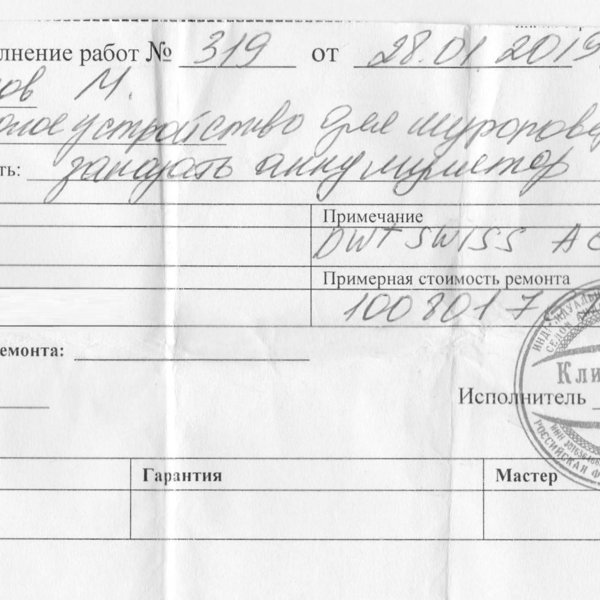 лнение работ № 319 от 28.01.2019
ов М.
устройство для шуруповер
ть: заказать аккумулятор
Примечание
DWT SWISS AG
Примерная стоимость ремонта
1008017
емонта:
Исполнитель
Кли
РОССИЙСКАЯ Ф
Гарантия Мастер